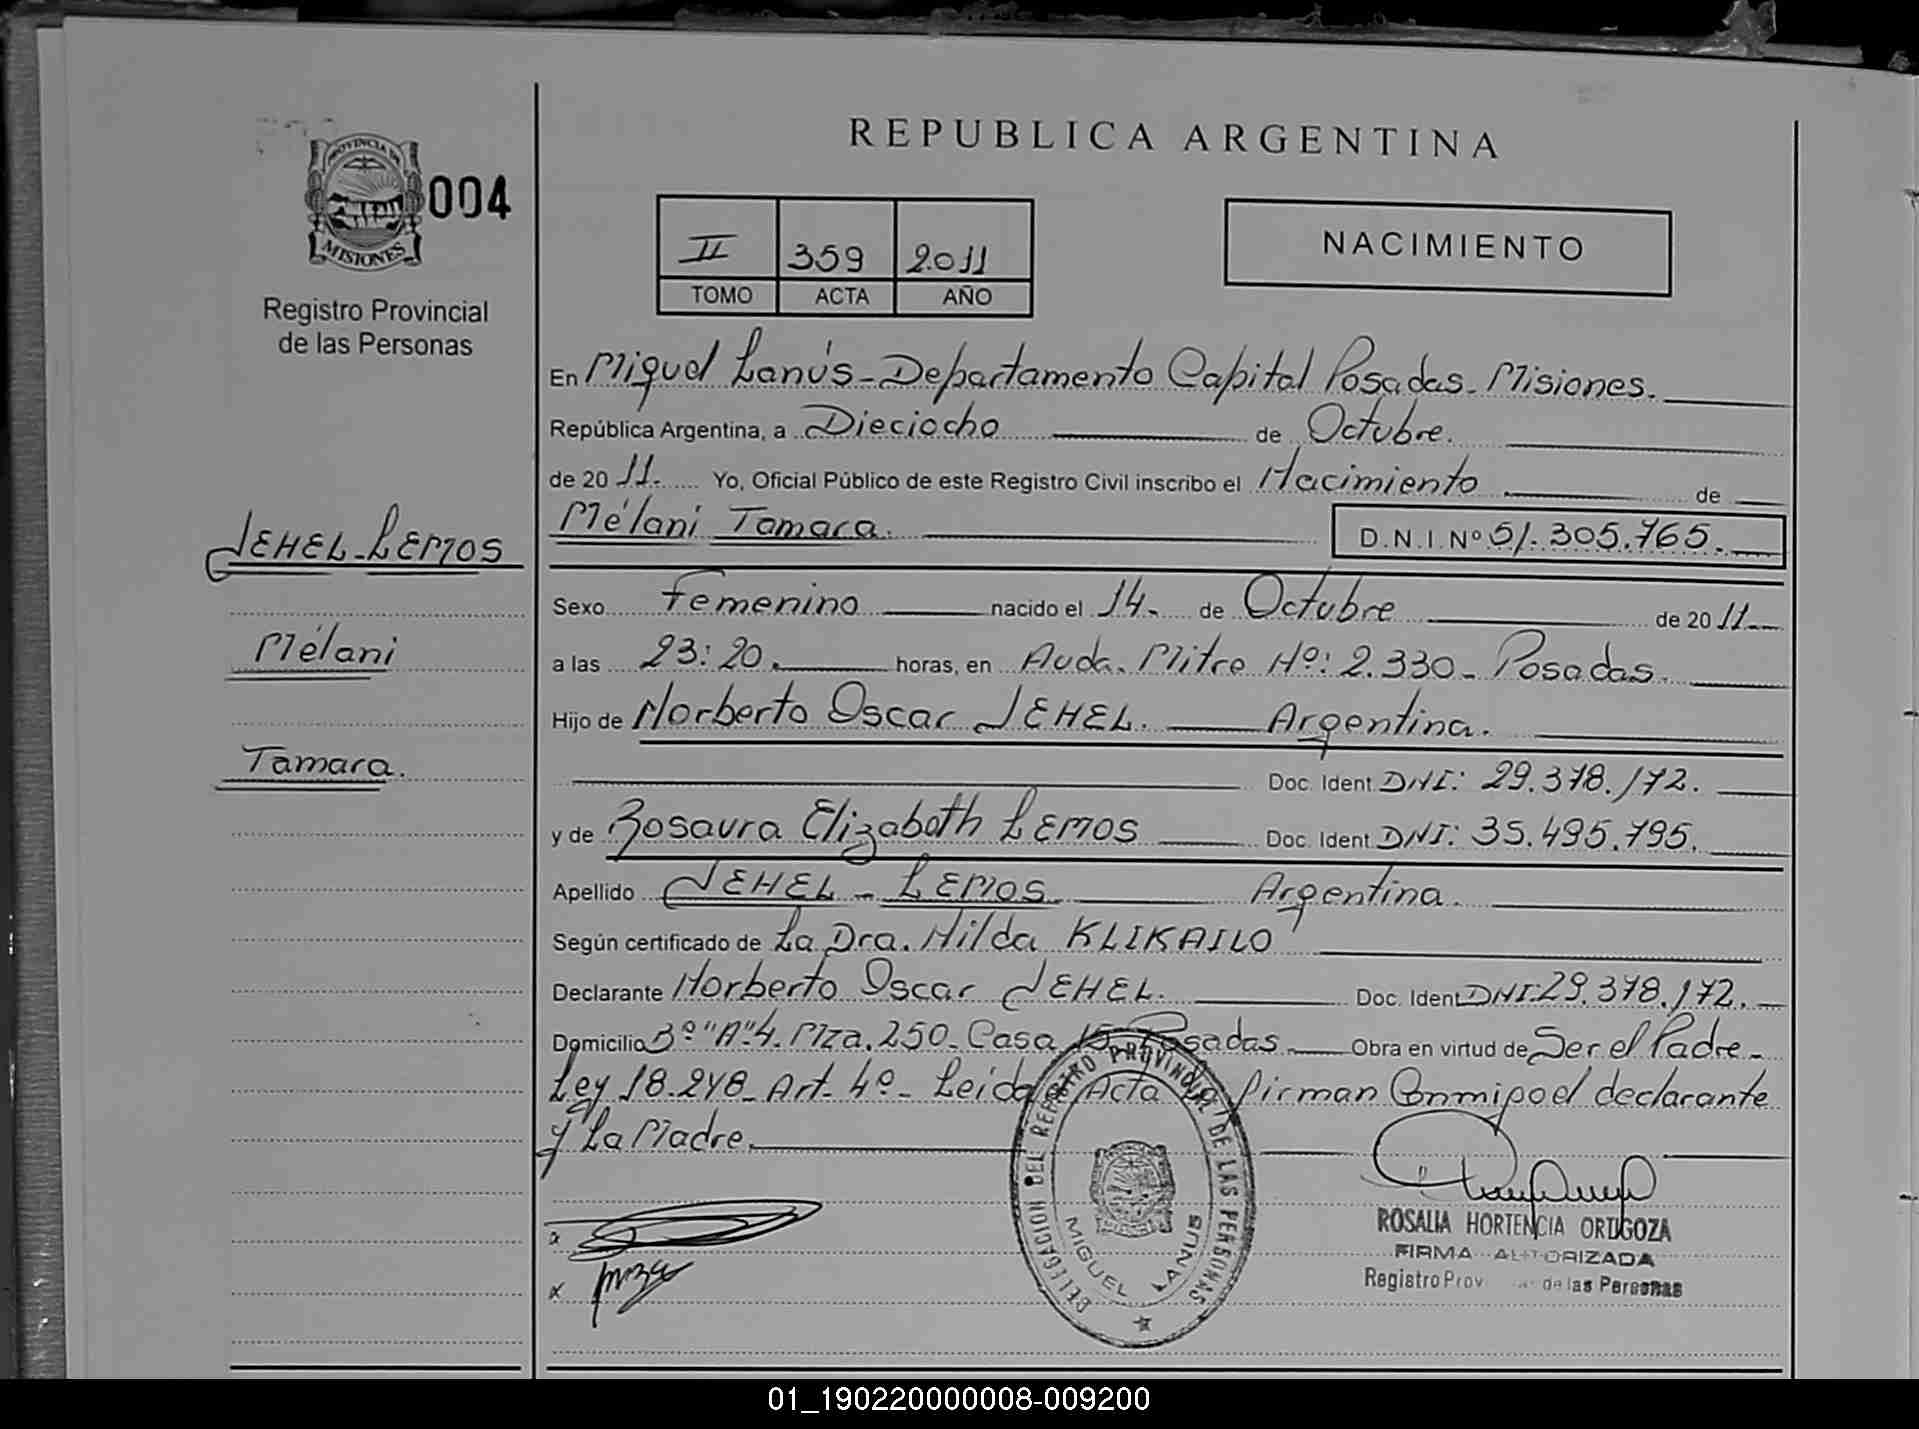 REPUBLICA ARGENTINA
PROVINCIA DE
MISIONES
004
Registro Provincial
de las Personas
II 359 2011
TOMO ACTA AÑO
NACIMIENTO
En Miguel Lanús - Departamento Capital Posadas - Misiones.
República Argentina, a Dieciocho de Octubre.
de 20 11. Yo, Oficial Público de este Registro Civil inscribo el Nacimiento de
Mélani Tamara. D.N.I.Nº 51.305.765.
JEHEL-LEMOS
Mélani
Tamara.
Sexo Femenino nacido el 14- de Octubre de 20 11-
a las 23:20. horas, en Avda. Mitre Nº: 2.330 - Posadas.
Hijo de Norberto Oscar JEHEL. Argentina.
Doc. Ident. DNI: 29.378.172.
y de Rosaura Elizabeth LEMOS Doc. Ident. DNI: 35.495.795.
Apellido JEHEL - LEMOS. Argentina.
Según certificado de La Dra. Hilda KLIKAILO
Declarante Norberto Oscar JEHEL. Doc. Ident. DNI: 29.378.172.
Domicilio Bº "A"4. Mza. 250 - Casa 15 - Posadas. Obra en virtud de Ser el Padre -
Ley 18.248 - Art. 4º - Leida Acta La firman Conmigo el declarante
y La Madre.
DELEGACION DEL REGISTRO PROVINCIAL DE LAS PERSONAS
MIGUEL LANUS
ROSALIA HORTENCIA ORTIGOZA
FIRMA AUTORIZADA
Registro Prov de las Personas
01_190220000008-009200